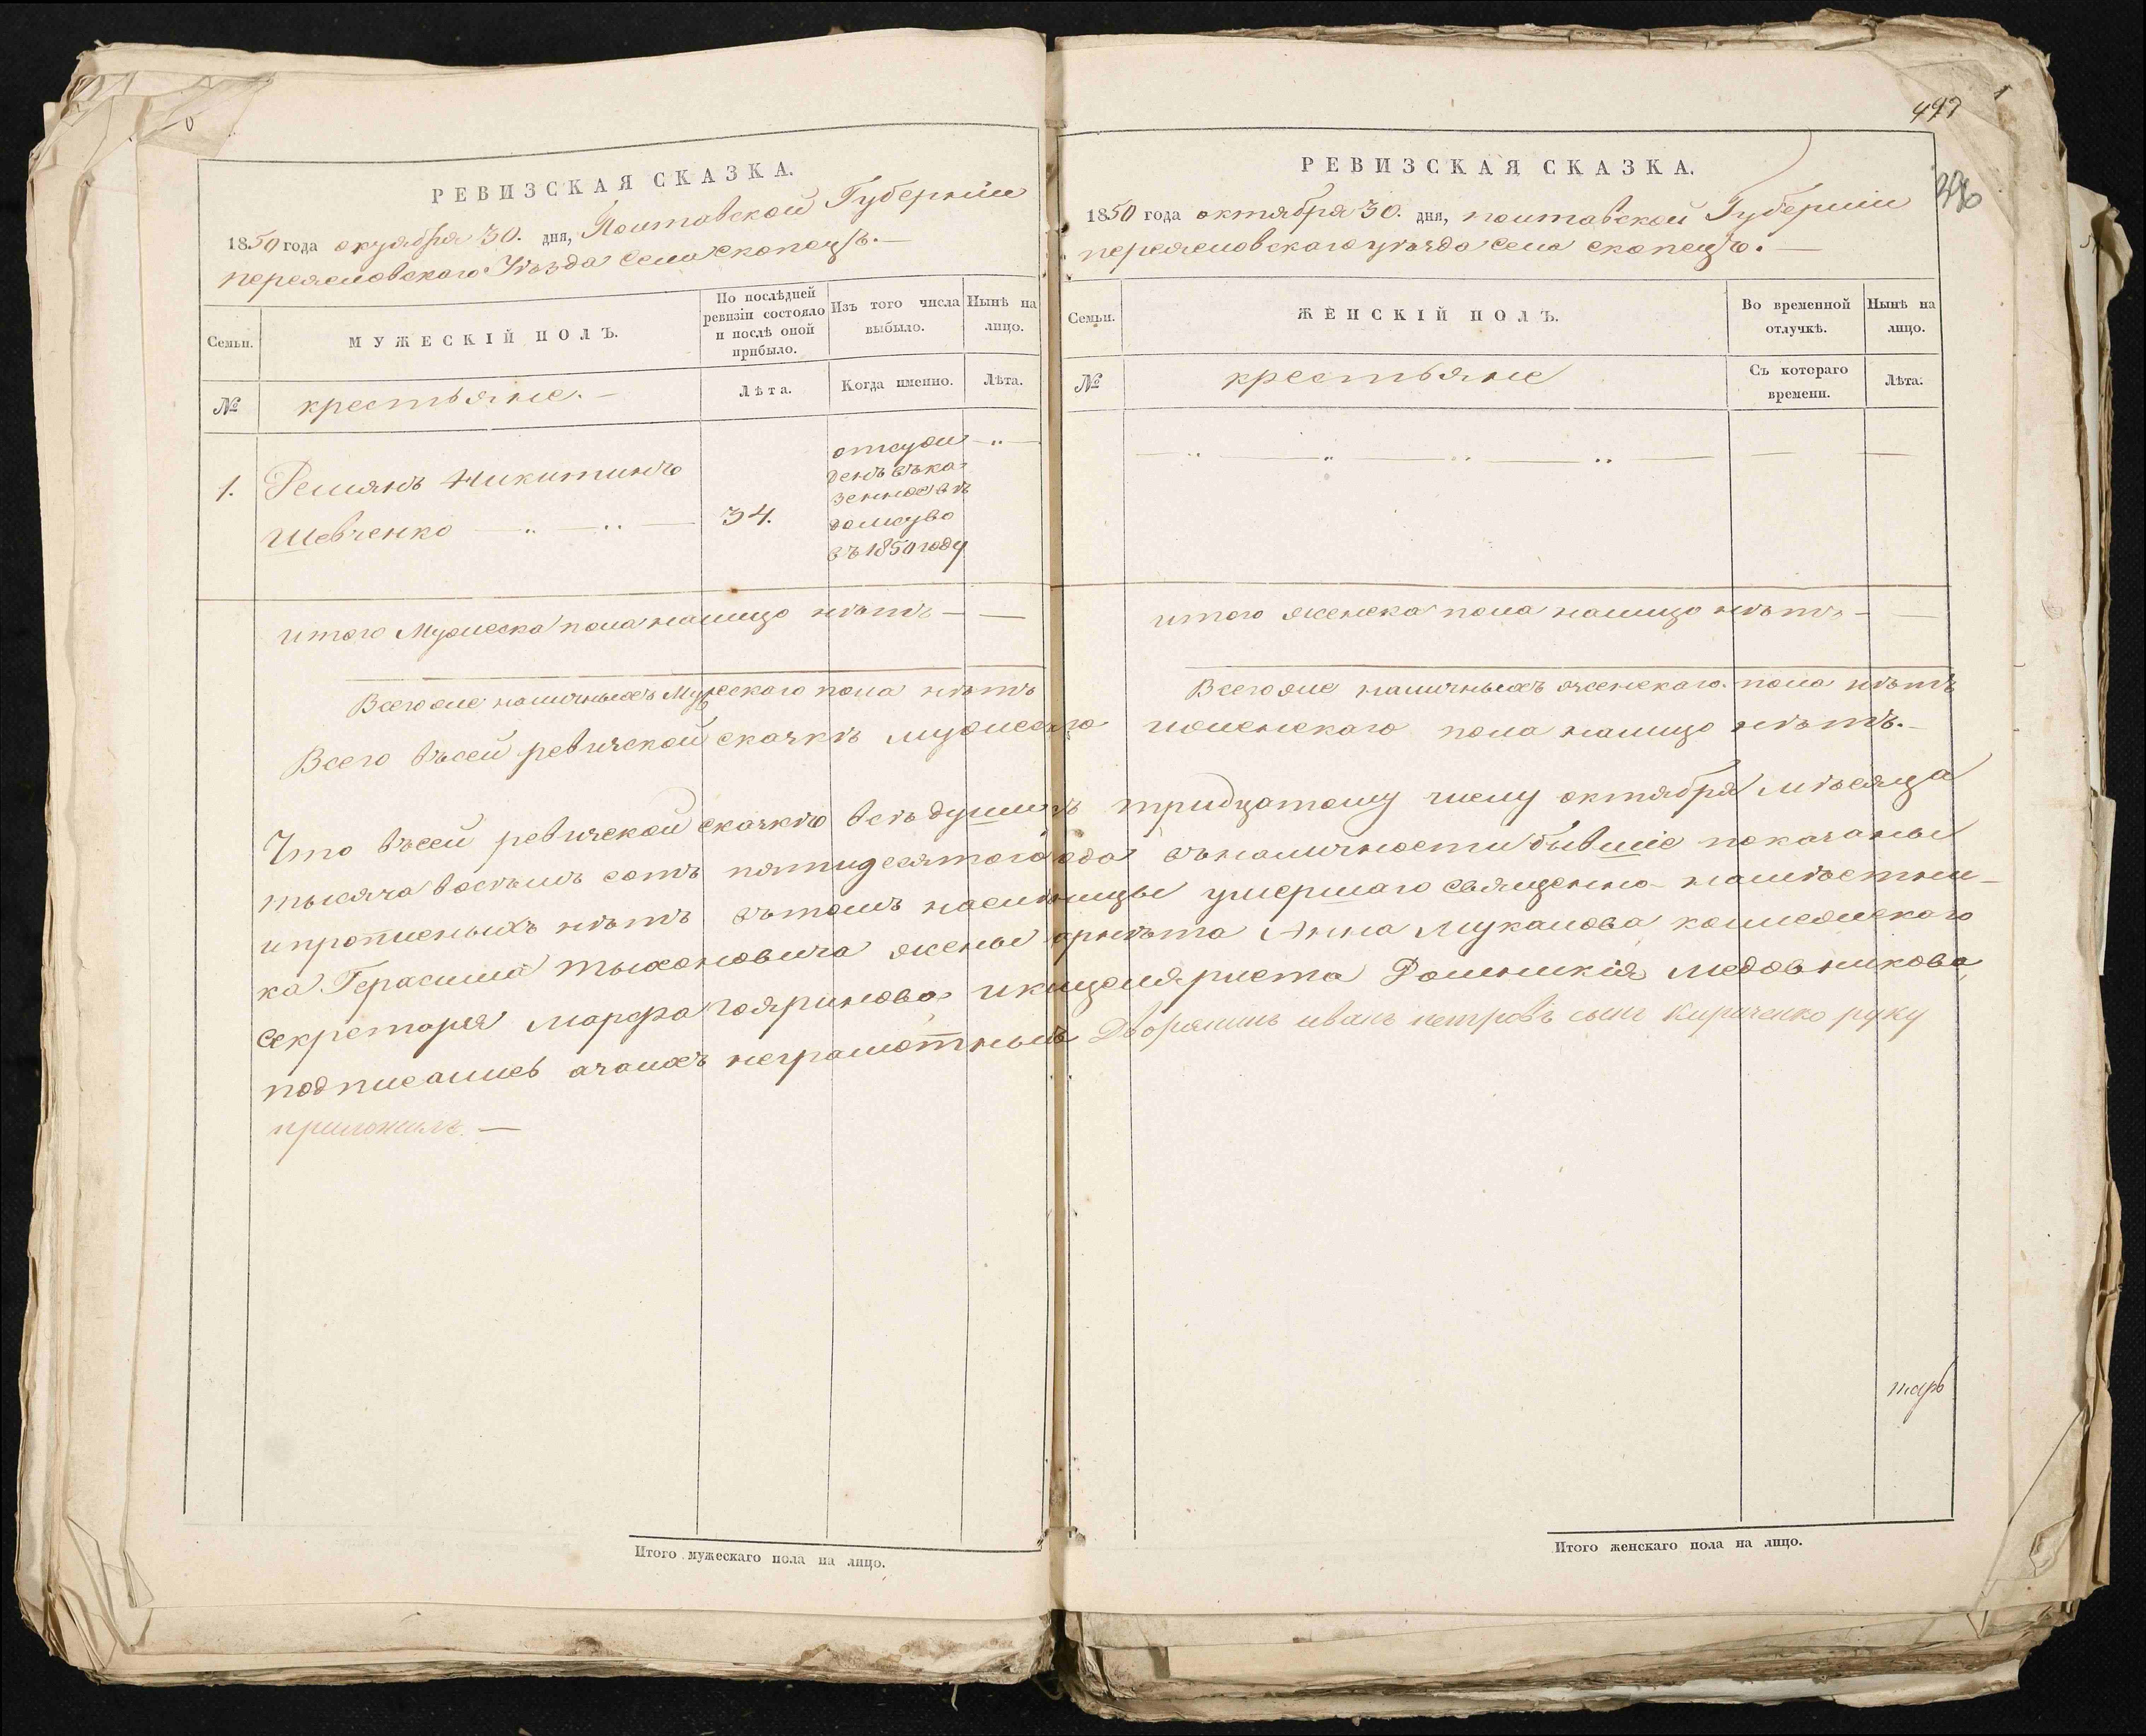 РЕВИЗСКАЯ СКАЗКА.
1850 года октября 30. дня, Полтавской Губерніи
переясловского Уѣзда Села Скопецъ.—
Семьи.
МУЖЕСКІЙ ПОЛЪ.
По послѣдней ревизіи состояло и послѣ оной прибыло.
Изъ того числа выбыло.
Нынѣ на лицо.
№
крестьяне.—
Лѣта.
Когда именно.
Лѣта.
1.
Демянъ Никитинъ
Шевченко
34.
отсуж
денъ въ ка-
зенное вѣ
домство
въ 1850 году
итого Мужеска пола налицо нѣтъ —
Всего же наличныхъ Мужескаго пола нѣтъ
497
396
РЕВИЗСКАЯ СКАЗКА.
1850 года октября 30. дня, полтавской Губерніи
переясловского уѣзда села скопецъ.—
Семьи.
ЖЕНСКІЙ ПОЛЪ.
Во временной отлучкѣ.
Нынѣ на лицо.
№
крестьяне
Съ котораго времени.
Лѣта.
итого женска пола налицо нѣтъ —
Всего же наличныхъ женскаго пола нѣтъ
Всего въсей ревизской сказкѣ мужеска го иженскаго пола налицо нѣтъ.—
Что въсей ревизской сказкѣ всѣ души къ тридцатому числу октября мѣсяца
тысяча восемь сотъ пятидесятого года въналичности бывшіе показаны
ипрописныхъ нѣтъ вътомъ наслѣдницы умершаго священно- намѣстни-
ка Герасима Тихоновича жены Анна Мукалова коллежскаго
секретаря Марфа иканцеляриста Медовникова
подписались азаихъ неграмотныхъ Дворянинъ иванъ петровъ сынъ Кириченко руку
приложилъ.—
Итого мужескаго пола на лицо.
Итого женскаго пола на лицо.